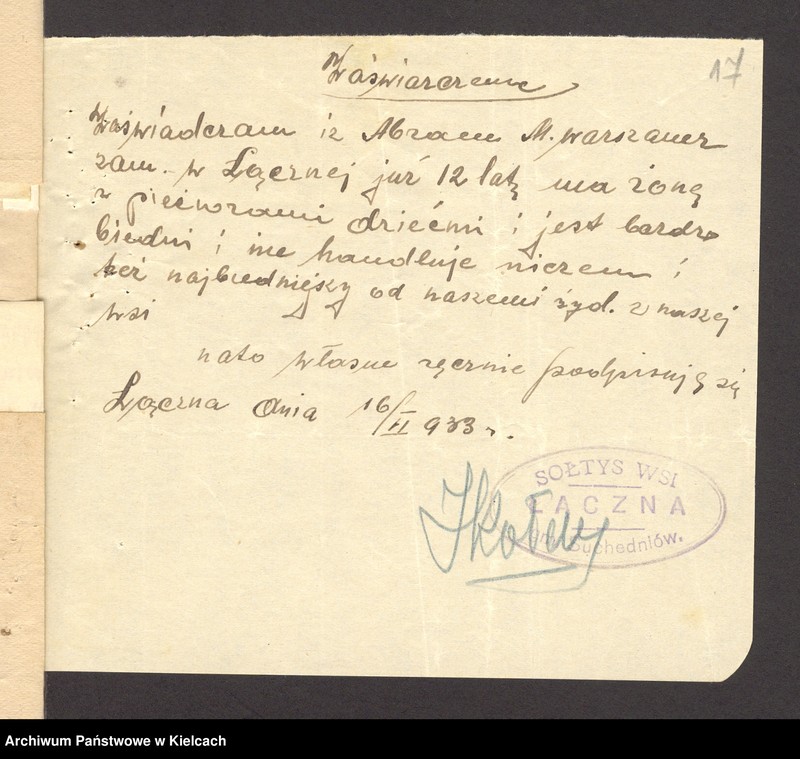 17
Zaświarczenie
Zaświadczam iż Abram M. Warszawer
zam. w Łącznej już 12 latę ma żonę
z pięciorami dziećmi i jest bardzo
biedni i nie handluje niczem i
też najbiedniejszy od naszemi żyd. z naszej
wsi
nato własne ręcznie podpisuję się
Łączna dnia 16/II 933 r.
SOŁTYS WSI
ŁĄCZNA
gm. Suchedniów.
Archiwum Państwowe w Kielcach